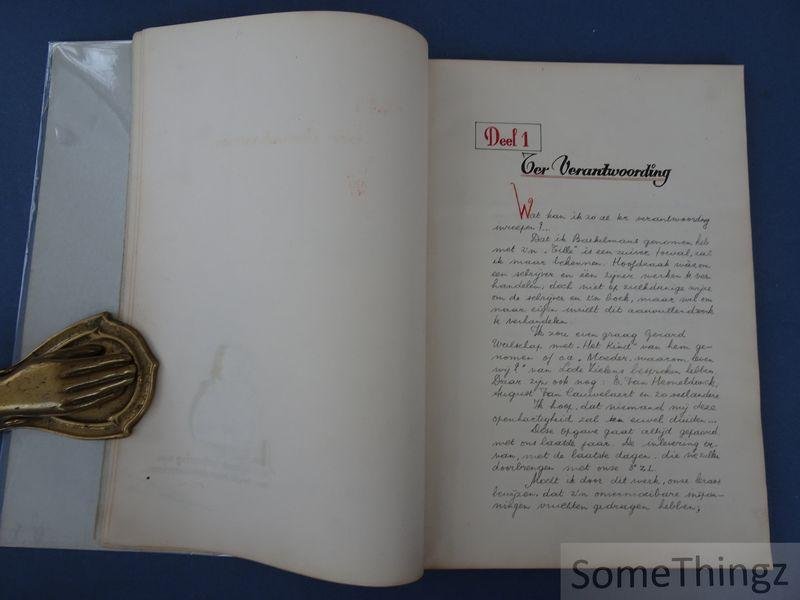 Deel 1
Ter Verantwoording
Wat kan ik zo al ter verantwoording
inroepen?...
Dat ik Baekelmans genomen heb
met z'n "Tille" is een zuiver toeval, zal
ik maar bekennen. Hoofdzaak was om
een schrijver en één zijner werken te ver
handelen, doch niet op zulkdanige wijze
om de schrijver en z'n boek, maar wel om
naar eigen inzicht dit
te verhandelen.
Ik zou even graag Gerard
Walschap met "Het Kind" van hem ge-
nomen of o.a. "Moeder, waarom leven
wij?" van Lode Zielens besproken hebben.
Daar zijn ook nog: E. Van Hemeldonck,
August Van Cauwelaert en zo veel andere
Ik hoop, dat niemand mij deze
openhartigheid zal ten euvel duiden...
Deze opgave gaat altijd gepaard
met ons laatste jaar. De inlevering er-
van, met de laatste dagen die we zullen
doorbrengen met onze
Moest ik door dit werk, onze leraar
bewijzen, dat z'n onvermoeibare inspan-
ningen vruchten gedragen hebben,
SomeThingz